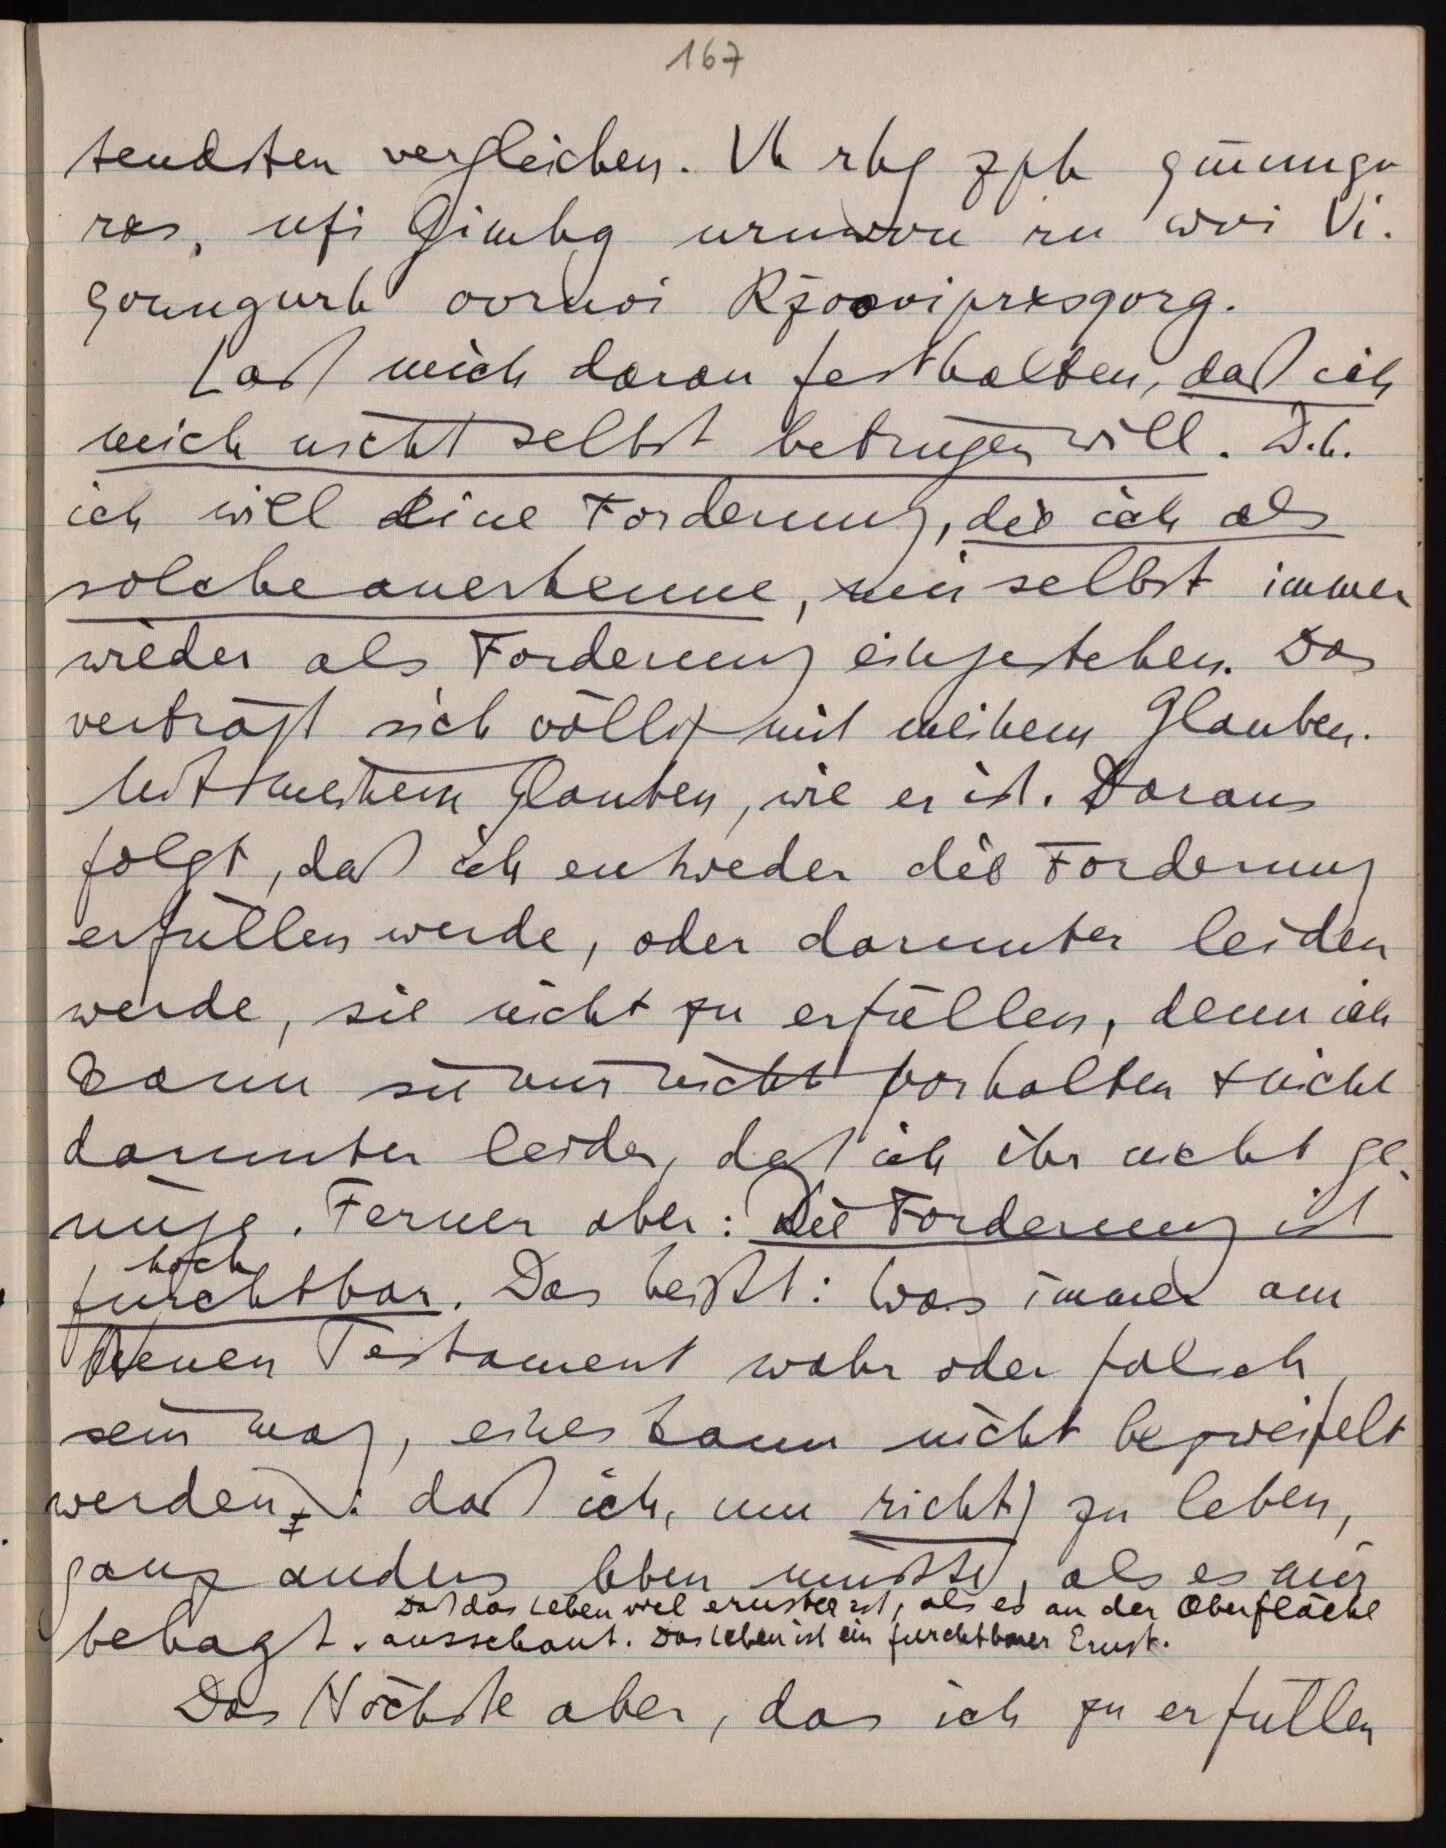 167
tendsten vergleichen. Vh rhg zph qm̈nngv
rxs, ufi Gimhg urnwvn rn wvi Vi-
qvnngnrh ovrnvi Rz̈ooviprxsqvrg.
Laß mich daran festhalten, daß ich
mich nicht selbst betrügen will. D.h.
ich will eine Forderung, die ich als
solche anerkenne, mir selbst immer
wieder als Forderung eingestehen. Das
verträgt sich völlig mit meinem Glauben.
Mit meinem Glauben, wie er ist. Daraus
folgt, daß ich entweder die Forderung
erfüllen werde, oder darunter leiden
werde, sie nicht zu erfüllen, denn ich
kann sie mir nicht vorhalten & nicht
darunter leiden, daß ich ihr nicht ge-
nüge. Ferner aber: Die Forderung ist
hoch
furchtbar. Das heißt: Was immer am
Neuen Testament wahr oder falsch
sein mag, eines kann nicht bezweifelt
werden: daß ich, um richtig zu leben,
ganz anders leben müßte, als es mir
Daß das Leben viel ernster ist, als es an der Oberfläche
behagt. ausschaut. Das Leben ist ein furchtbarer Ernst.
Das Höchste aber, das ich zu erfüllen